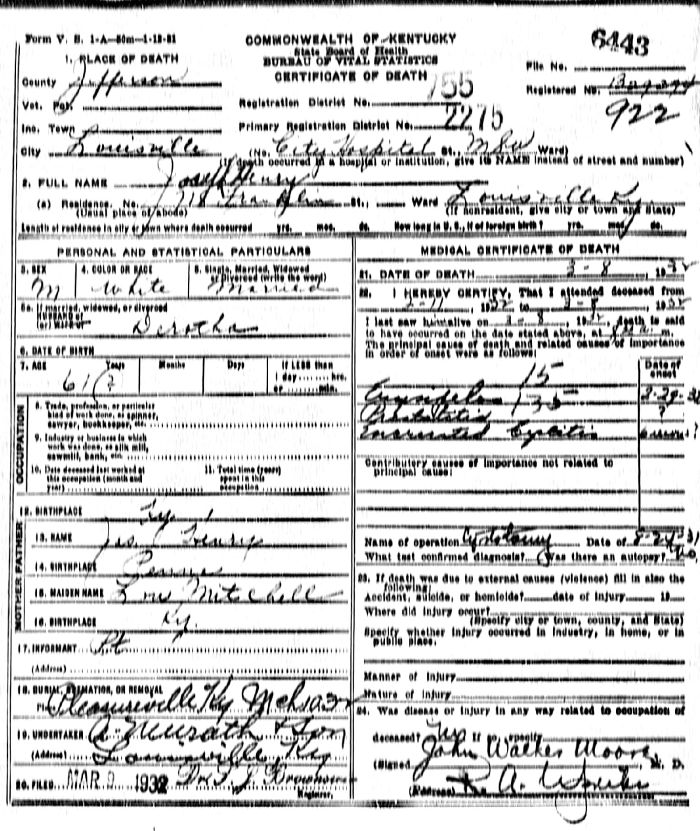 Form V. S. 1-A—50m—1-13-31
COMMONWEALTH OF KENTUCKY
State Board of Health
BUREAU OF VITAL STATISTICS
CERTIFICATE OF DEATH
6443
File No.
Registered No.
922
1. PLACE OF DEATH
County Jefferson
Vot. Pct.
Inc. Town
City Louisville
Registration District No. 755
Primary Registration District No. 2275
(No. City Hospital St., Ward)
(If death occurred in a hospital or institution, give its NAME instead of street and number)
2. FULL NAME Joseph Henry
(a) Residence. No. 718 Franklin St., Ward Louisville Ky.
(Usual place of abode) (If nonresident, give city or town and State)
Length of residence in city or town where death occurred yrs. mos. ds. How long in U. S., if of foreign birth? yrs. mos. ds.
PERSONAL AND STATISTICAL PARTICULARS
3. SEX
M
4. COLOR OR RACE
White
5. Single, Married, Widowed
or Divorced (write the word)
Married
5a. If married, widowed, or divorced
HUSBAND of
(or) WIFE of Derotha
6. DATE OF BIRTH
7. AGE Years Months Days If LESS than
1 day, hrs.
or min.
61(?)
OCCUPATION
8. Trade, profession, or particular
kind of work done, as spinner,
sawyer, bookkeeper, etc.
9. Industry or business in which
work was done, as silk mill,
sawmill, bank, etc.
10. Date deceased last worked at
this occupation (month and
year)
11. Total time (years)
spent in this
occupation
12. BIRTHPLACE Ky.
MOTHER FATHER
13. NAME Jas. Henry
14. BIRTHPLACE Penna
15. MAIDEN NAME Lou Mitchell
16. BIRTHPLACE Ky.
17. INFORMANT Pt
(Address)
18. BURIAL, CREMATION, OR REMOVAL
Pleasureville Ky
19. UNDERTAKER & Son
(Address) Louisville, Ky
20. FILED MAR 9 1932
Registrar.
MEDICAL CERTIFICATE OF DEATH
21. DATE OF DEATH 3-8, 1932
22. I HEREBY CERTIFY, That I attended deceased from
1932 to 3-8, 1932
I last saw him alive on 3-8, 1932, death is said
to have occurred on the date stated above, at m.
The principal cause of death and related causes of importance
in order of onset were as follows:
Date of
onset
15
Erysipelas 135
Prostatitis ?
Cystitis
Contributory causes of importance not related to
principal cause:
Name of operation Cystotomy Date of
What test confirmed diagnosis? Was there an autopsy? No.
23. If death was due to external causes (violence) fill in also the
following:
Accident, suicide, or homicide? date of injury 19
Where did injury occur?
(Specify city or town, county, and State)
Specify whether injury occurred in industry, in home, or in
public place.
Manner of Injury
Nature of Injury
24. Was disease or injury in any way related to occupation of
deceased? No If so, specify
(Signed) John Walker Moore, M. D.
(Address)